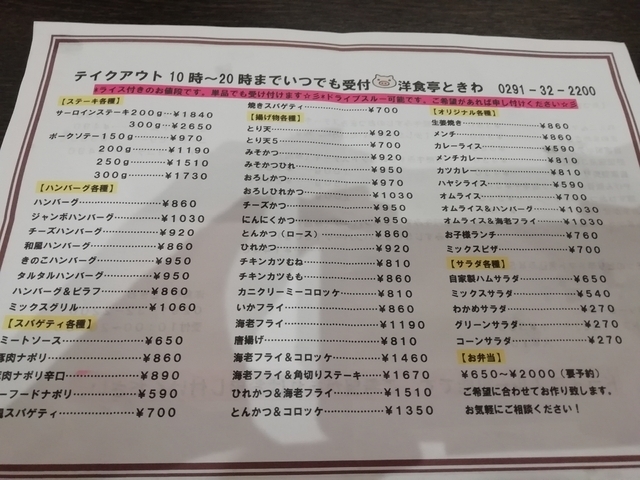 テイクアウト 10時～20時までいつでも受付 洋食亭ときわ 0291-32-2200
*ライス付きのお値段です。単品でも受け付けます☆彡*ドライブスルー可能です。ご希望があれば申し付けください☆彡
【ステーキ各種】
サーロインステーキ200g…¥1840
300g…¥2650
ポークソテー150g………¥970
200g………¥1190
250g………¥1510
300g………¥1730
【ハンバーグ各種】
ハンバーグ………¥860
ジャンボハンバーグ………¥1030
チーズハンバーグ………¥920
和風ハンバーグ………¥860
きのこハンバーグ………¥950
タルタルハンバーグ………¥950
ハンバーグ&ピラフ………¥860
ミックスグリル………¥1060
【スパゲティ各種】
ミートソース………¥650
豚肉ナポリ………¥860
豚肉ナポリ辛口………¥890
ーフードナポリ………¥590
スパゲティ………¥700
焼きスパゲティ………¥700
【揚げ物各種】
とり天………¥920
とり天5………¥700
みそかつ………¥920
みそかつひれ………¥950
おろしかつ………¥970
おろしひれかつ………¥1030
チーズかつ………¥950
にんにくかつ………¥950
とんかつ(ロース)………¥860
ひれかつ………¥920
チキンカツむね………¥810
チキンカツもも………¥860
カニクリーミーコロッケ………¥810
いかフライ………¥860
海老フライ………¥1190
唐揚げ………¥810
海老フライ&コロッケ………¥1460
海老フライ&角切りステーキ………¥1670
ひれかつ&海老フライ………¥1510
とんかつ&コロッケ………¥1350
【オリジナル各種】
生姜焼き………¥860
メンチ………¥860
カレーライス………¥590
メンチカレー………¥810
カツカレー………¥810
ハヤシライス………¥590
オムライス………¥700
オムライス&ハンバーグ………¥1030
オムライス&海老フライ………¥1030
お子様ランチ………¥760
ミックスピザ………¥700
【サラダ各種】
自家製ハムサラダ………¥650
ミックスサラダ………¥540
わかめサラダ………¥270
グリーンサラダ………¥270
コーンサラダ………¥270
【お弁当】
¥650～¥2000(要予約)
ご希望に合わせてお作り致します。
お気軽にご相談ください!